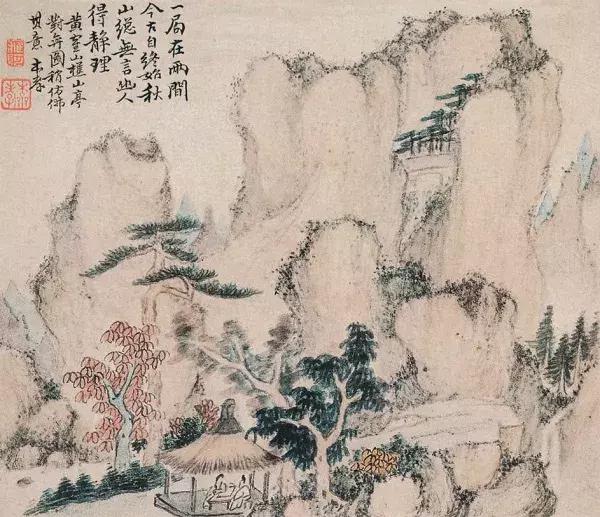 一局在兩間
今古自終始秋
山總無言幽人
得靜理
黃鶴山樵山亭
對弈圖稍仿佛
其意